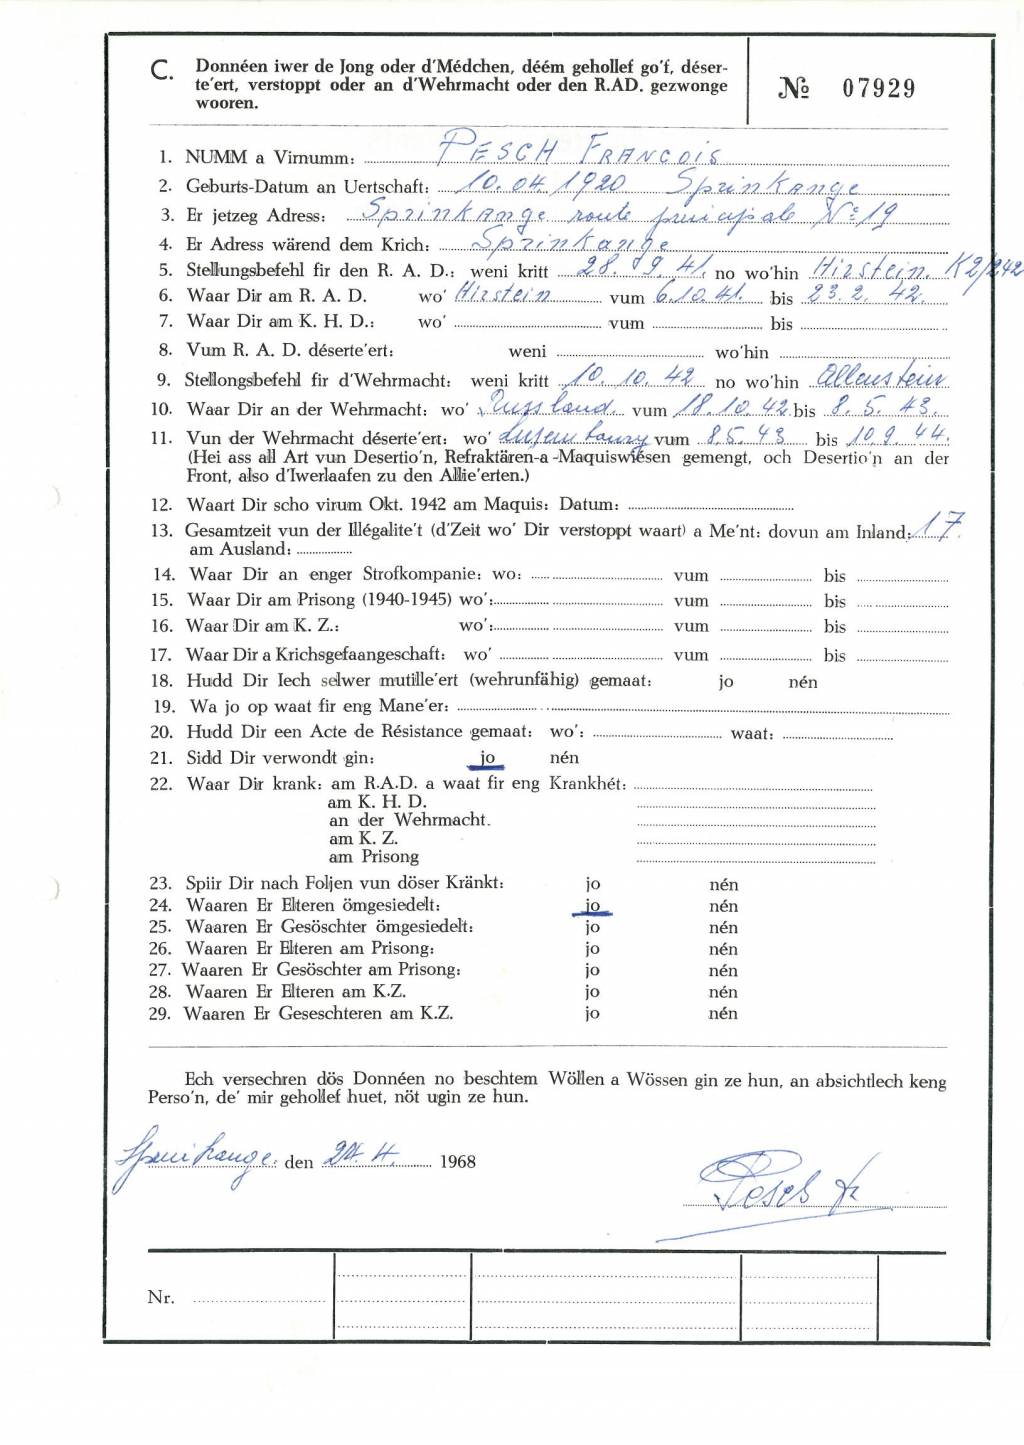 C. Donnéen iwer de Jong oder d'Médchen, déém gehollef go'f, déser-
te'ert, verstoppt oder an d'Wehrmacht oder den R.AD. gezwonge
wooren.
№ 07929
1. NUMM a Virnumm: PESCH FRANCOIS
2. Geburts-Datum an Uertschaft: 10.04.1920 Sprinkange
3. Er jetzeg Adress: Sprinkange route principale N° 19
4. Er Adress wärend dem Krich: Sprinkange
5. Stellungsbefehl fir den R. A. D.: weni kritt 28. 09. 41. no wo'hin Hirstein. K2/242
6. Waar Dir am R. A. D. wo' Hirstein vum 6.10.41. bis 23. 2. 42.
7. Waar Dir am K. H. D.: wo' vum bis
8. Vum R. A. D. déserte'ert: weni wo'hin
9. Stellongsbefehl fir d'Wehrmacht: weni kritt 10. 10. 42 no wo'hin Allenstein
10. Waar Dir an der Wehrmacht: wo' Russland. vum 18.10.42. bis 8. 5. 43.
11. Vun der Wehrmacht déserte'ert: wo' Luxembourg vum 8.5.43 bis 10.9.44.
(Hei ass all Art vun Desertio'n, Refraktären-a-Maquiswiesen gemengt, och Desertio'n an der
Front, also d'Iwerlaafen zu den Allie'erten.)
12. Waart Dir scho virum Okt. 1942 am Maquis: Datum:
13. Gesamtzeit vun der Illégalite't (d'Zeit wo' Dir verstoppt waart) a Me'nt: dovun am Inland: 17.
am Ausland:
14. Waar Dir an enger Strofkompanie: wo: vum bis
15. Waar Dir am Prisong (1940-1945) wo': vum bis
16. Waar Dir am K. Z.: wo': vum bis
17. Waar Dir a Krichsgefaangeschaft: wo' vum bis
18. Hudd Dir Iech selwer mutille'ert (wehrunfähig) gemaat: jo nén
19. Wa jo op waat fir eng Mane'er:
20. Hudd Dir een Acte de Résistance gemaat: wo': waat:
21. Sidd Dir verwondt gin: jo nén
22. Waar Dir krank: am R.A.D. a waat fir eng Krankhét:
am K. H. D.
an der Wehrmacht.
am K. Z.
am Prisong
23. Spiir Dir nach Foljen vun döser Kränkt: jo nén
24. Waaren Er Elteren ömgesiedelt: jo nén
25. Waaren Er Gesöschter ömgesiedelt: jo nén
26. Waaren Er Elteren am Prisong: jo nén
27. Waaren Er Gesöschter am Prisong: jo nén
28. Waaren Er Elteren am K.Z. jo nén
29. Waaren Er Geseschteren am K.Z. jo nén
Ech versechren dös Donnéen no beschtem Wöllen a Wössen gin ze hun, an absichtlech keng
Perso'n, de' mir gehollef huet, nöt ugin ze hun.
Sprinkange. den 24. 4. 1968
Pesch Fr
Nr.